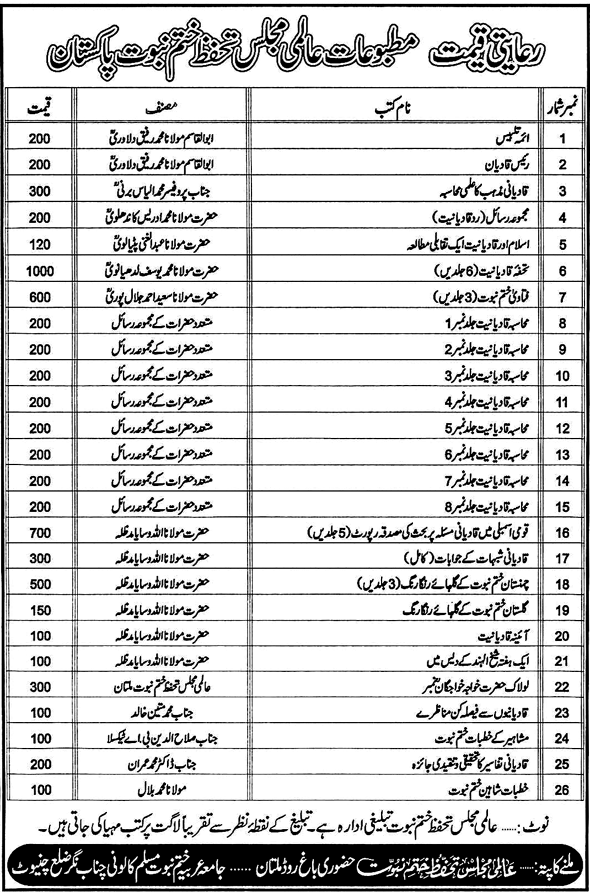 رعایتی قیمت مطبوعات عالمی مجلس تحفظ ختم نبوت پاکستان
نمبر شمار نام کتب مصنف قیمت
1 ائمہ تلبیس ابو القاسم مولانا محمد رفیق دلاوریؒ 200
2 رئیس قادیان ابو القاسم مولانا محمد رفیق دلاوریؒ 200
3 قادیانی مذہب کا علمی محاسبہ جناب پروفیسر محمد الیاس برنیؒ 300
4 مجموعہ رسائل (رد قادیانیت) حضرت مولانا محمد ادریس کاندھلویؒ 200
5 اسلام اور قادیانیت ایک تقابلی مطالعہ حضرت مولانا عبد الغنی پٹیالویؒ 120
6 تحفہ قادیانیت (6 جلدیں) حضرت مولانا محمد یوسف لدھیانویؒ 1000
7 فتاویٰ ختم نبوت (3 جلدیں) حضرت مولانا سعید احمد جلال پوریؒ 600
8 محاسبہ قادیانیت جلد نمبر 1 متعدد حضرات کے مجموعہ رسائل 200
9 محاسبہ قادیانیت جلد نمبر 2 متعدد حضرات کے مجموعہ رسائل 200
10 محاسبہ قادیانیت جلد نمبر 3 متعدد حضرات کے مجموعہ رسائل 200
11 محاسبہ قادیانیت جلد نمبر 4 متعدد حضرات کے مجموعہ رسائل 200
12 محاسبہ قادیانیت جلد نمبر 5 متعدد حضرات کے مجموعہ رسائل 200
13 محاسبہ قادیانیت جلد نمبر 6 متعدد حضرات کے مجموعہ رسائل 200
14 محاسبہ قادیانیت جلد نمبر 7 متعدد حضرات کے مجموعہ رسائل 200
15 محاسبہ قادیانیت جلد نمبر 8 متعدد حضرات کے مجموعہ رسائل 200
16 قومی اسمبلی میں قادیانی مسئلہ پر بحث کی مصدقہ رپورٹ (5 جلدیں) حضرت مولانا اللہ وسایا مدظلہ 700
17 قادیانی شبہات کے جوابات (کامل) حضرت مولانا اللہ وسایا مدظلہ 300
18 چمنستان ختم نبوت کے گلہائے رنگا رنگ (3 جلدیں) حضرت مولانا اللہ وسایا مدظلہ 500
19 گلستان ختم نبوت کے گلہائے رنگا رنگ حضرت مولانا اللہ وسایا مدظلہ 150
20 آئینہ قادیانیت حضرت مولانا اللہ وسایا مدظلہ 100
21 ایک ہفتہ شیخ الہند کے دیس میں حضرت مولانا اللہ وسایا مدظلہ 100
22 لولاک حضرت خواجہ خواجگان نمبر عالمی مجلس تحفظ ختم نبوت ملتان 300
23 قادیانیوں سے فیصلہ کن مناظرے جناب محمد متین خالد 100
24 مشاہیر کے خطبات ختم نبوت جناب صلاح الدین بی اے ٹیکسلا 100
25 قادیانی تفاسیر کا تحقیقی و تنقیدی جائزہ جناب ڈاکٹر محمد عمران 200
26 خطبات شاہین ختم نبوت مولانا محمد بلال 100
نوٹ: ...... عالمی مجلس تحفظ ختم نبوت تبلیغی ادارہ ہے۔ تبلیغ کے نقطۂ نظر سے تقریباً لاگت پر کتب مہیا کی جاتی ہیں۔
ملنے کا پتہ: ...... عالمی مجلس تحفظ ختم نبوت حضوری باغ روڈ ملتان ...... جامعہ عربیہ ختم نبوت مسلم کالونی چناب نگر ضلع چنیوٹ